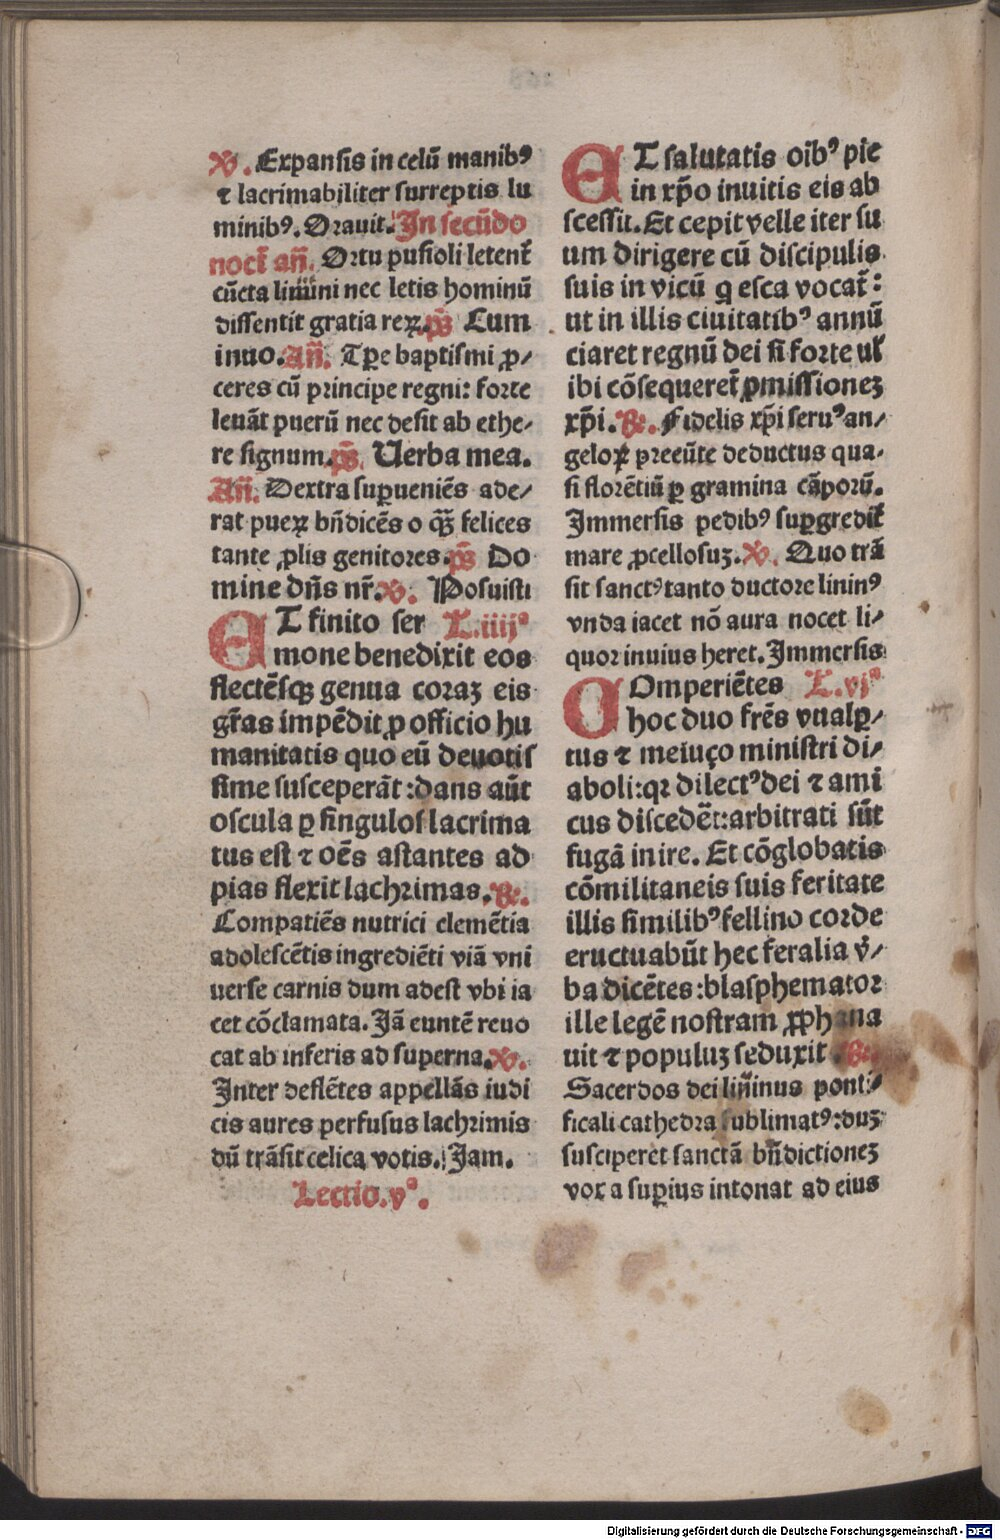 ℣. Expansis in celū manibꝰ
⁊ lacrimabiliter surreptis lu
minibꝰ. Orauit. In secūdo
noct̄ an̄. Ortu pusioli letent̄
cūcta limini nec letis hominū
dissentit gratia reꝝ. ps̄ Cum
inuo. An̄. Tꝑe baptismi ꝓ/
ceres cū principe regni: forte
leuāt puerū nec desit ab ethe/
re signum. ps̄. Uerba mea.
An̄. Dextra suꝑueniēs ade/
rat pueꝝ bn̄dicēs o qͣꝫ felices
tante ꝓlis genitores. ps̄ Do
mine dn̄s nr̄. ℣. Posuisti
ET finito ser L. iiijᵃ
mone benedixit eos
flectēsqꝫ genua coraꝫ eis
gr̄as impēdit ꝓ officio hu
manitatis quo eū deuotis
sime susceperāt: dans aūt
oscula ꝑ singulos lacrima
tus est ⁊ oēs astantes ad
pias flexit lachrimas. ℟.
Compatiēs nutrici clemētia
adolescētis ingrediēti viā vni
uerse carnis dum adest vbi ia
cet cōclamata. Jā euntē reuo
cat ab inferis ad superna. ℣.
Inter deflētes appellās iudi
cis aures perfusus lachrimis
dū trāsit celica votis. Jam.
Lectio. vᵃ.
ET salutatis oībꝰ pie
in xp̄o inuitis eis ab
scessit. Et cepit velle iter su
um dirigere cū discipulis
suis in vicū q esca vocat̄:
ut in illis ciuitatibꝰ annū
ciaret regnū dei si forte ul̓
ibi cōsequeret̄ ꝓmissionez
xp̄i. ℟. Fidelis xp̄i seruꝰ an/
geloꝝ preeūte deductus qua/
si florētiū ꝑ gramina cāporū.
Immersis pedibꝰ suꝑgredit̄
mare ꝓcellosuꝫ. ℣. Quo trā
sit sanctꝰ tanto ductore lininꝰ
vnda iacet nō aura nocet li/
quor inuius heret. Immersis
COmperiētes L. vjᵃ
hoc duo frēs vnalꝑ/
tus ⁊ meiuço ministri di/
aboli: qꝛ dilectꝰ dei ⁊ ami
cus discedēt: arbitrati sūt
fugā inire. Et cōglobatis
cōmilitaneis suis feritate
illis similibꝰ fellino corde
eructuabūt hec feralia v̓/
ba dicētes: blasphemator
ille legē nostram ꝓphana
uit ⁊ populuꝫ seduxit. ℟.
Sacerdos dei lininus ponti/
ficali cathedra sublimatꝰ: duꝫ
susciperet sanctā bn̄dictionez
vox a suꝑius intonat ad eius
Digitalisierung gefördert durch die Deutsche Forschungsgemeinschaft - DFG